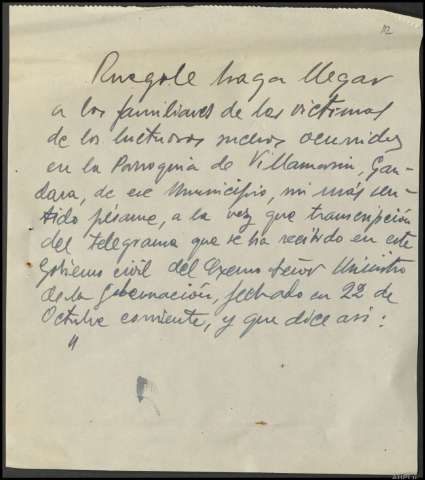 12
Ruegole haga llegar
a los familiares de las victimas
de los luctuosos sucesos ocurridos
en la Parroquia de Villamarin, Gan-
dara, de ese Municipio, mi más sen-
tido pésame, a la vez que transcripción
del telegrama que se ha recibido en este
Gobierno civil del Excmo Señor Ministro
de la Gobernación, fechado en 22 de
Octubre corriente, y que dice asi:
"